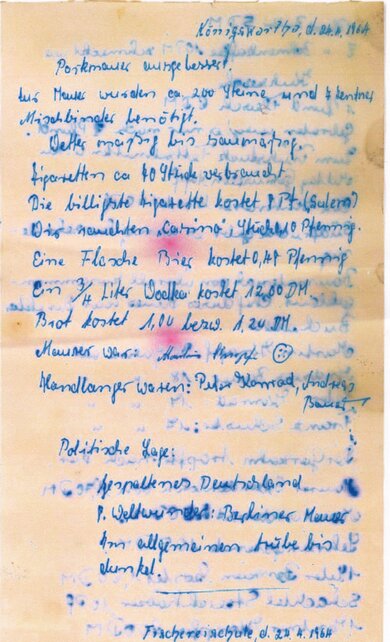 Königswartha, d. 24.4.1964
Parkmauer ausgebessert.
Zur Mauer wurden ca. 200 Steine und 4 Zentner
Mischbinder benötigt.
Wetter mäßig bis saumäßig.
Zigaretten ca 40 Stück verbraucht
Die billigste Zigarette kostet 8 Pf. (Salem)
Wir rauchten "Carina" Stück 10 Pfennig.
Eine Flasche Bier kostet 0,48 Pfennig
Ein 3/4 Liter Wodka kostet 12,80 DM
Brot kostet 1,04 bezw. 1,20 DM.
Maurer war:
Handlanger waren: Peter Konrad, Andreas
Politische Lage:
gespaltenes Deutschland
8. Weltwunder: Berliner Mauer
Im allgemeinen trübe bis
dunkel
Fischereischule, d. 24.4.1964